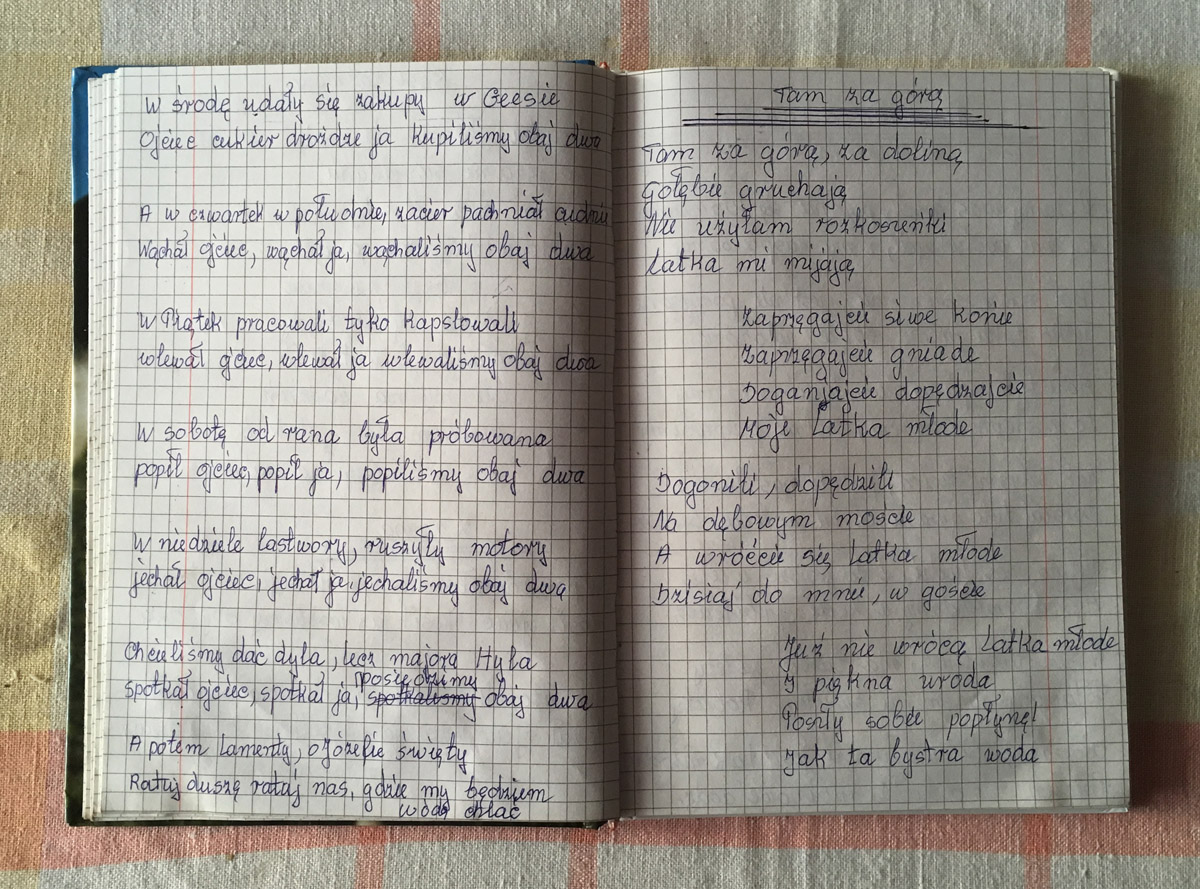 W środę udały się zakupy w Geesie
Ojciec cukier drożdże ja kupiliśmy obaj dwa
A w czwartek w południe, zacier pachniał cudnie
Wąchał ojciec, wąchał ja, wąchaliśmy obaj dwa
W Piątek pracowali tylko kapslowali
wlewał ojciec, wlewał ja wlewaliśmy obaj dwa
W sobotę od rana była próbowana
popił ojciec, popił ja, popiliśmy obaj dwa
W niedziele łastwory, ruszyły motory
jechał ojciec, jechał ja, jechaliśmy obaj dwa
Chcieliśmy dać dyla, lecz majora Hyla
posiedzimy
spotkał ojciec, spotkał ja, spotkaliśmy obaj dwa
A potem Lamenty, o Józefie święty
Ratuj duszę rataj nas, gdzie my będziem
wodę chlać
Tam za górą
Tam za górą, za doliną
Gołębie gruchają
Nie użyłam rozkoszeńki
Latka mi mijają
Zaprzęgajcie siwe konie
Zaprzęgajcie gniade
Doganjajcie dopędzajcie
Moje Latka młode
Dogonili, dopędzili
Na dębowym moście
A wróćcie się Latka młode
Dzisiaj do mnie, w goście
Już nie wrócą Latka młode
I piękna uroda
Poszły sobie popłynęł
Jak ta bystra woda